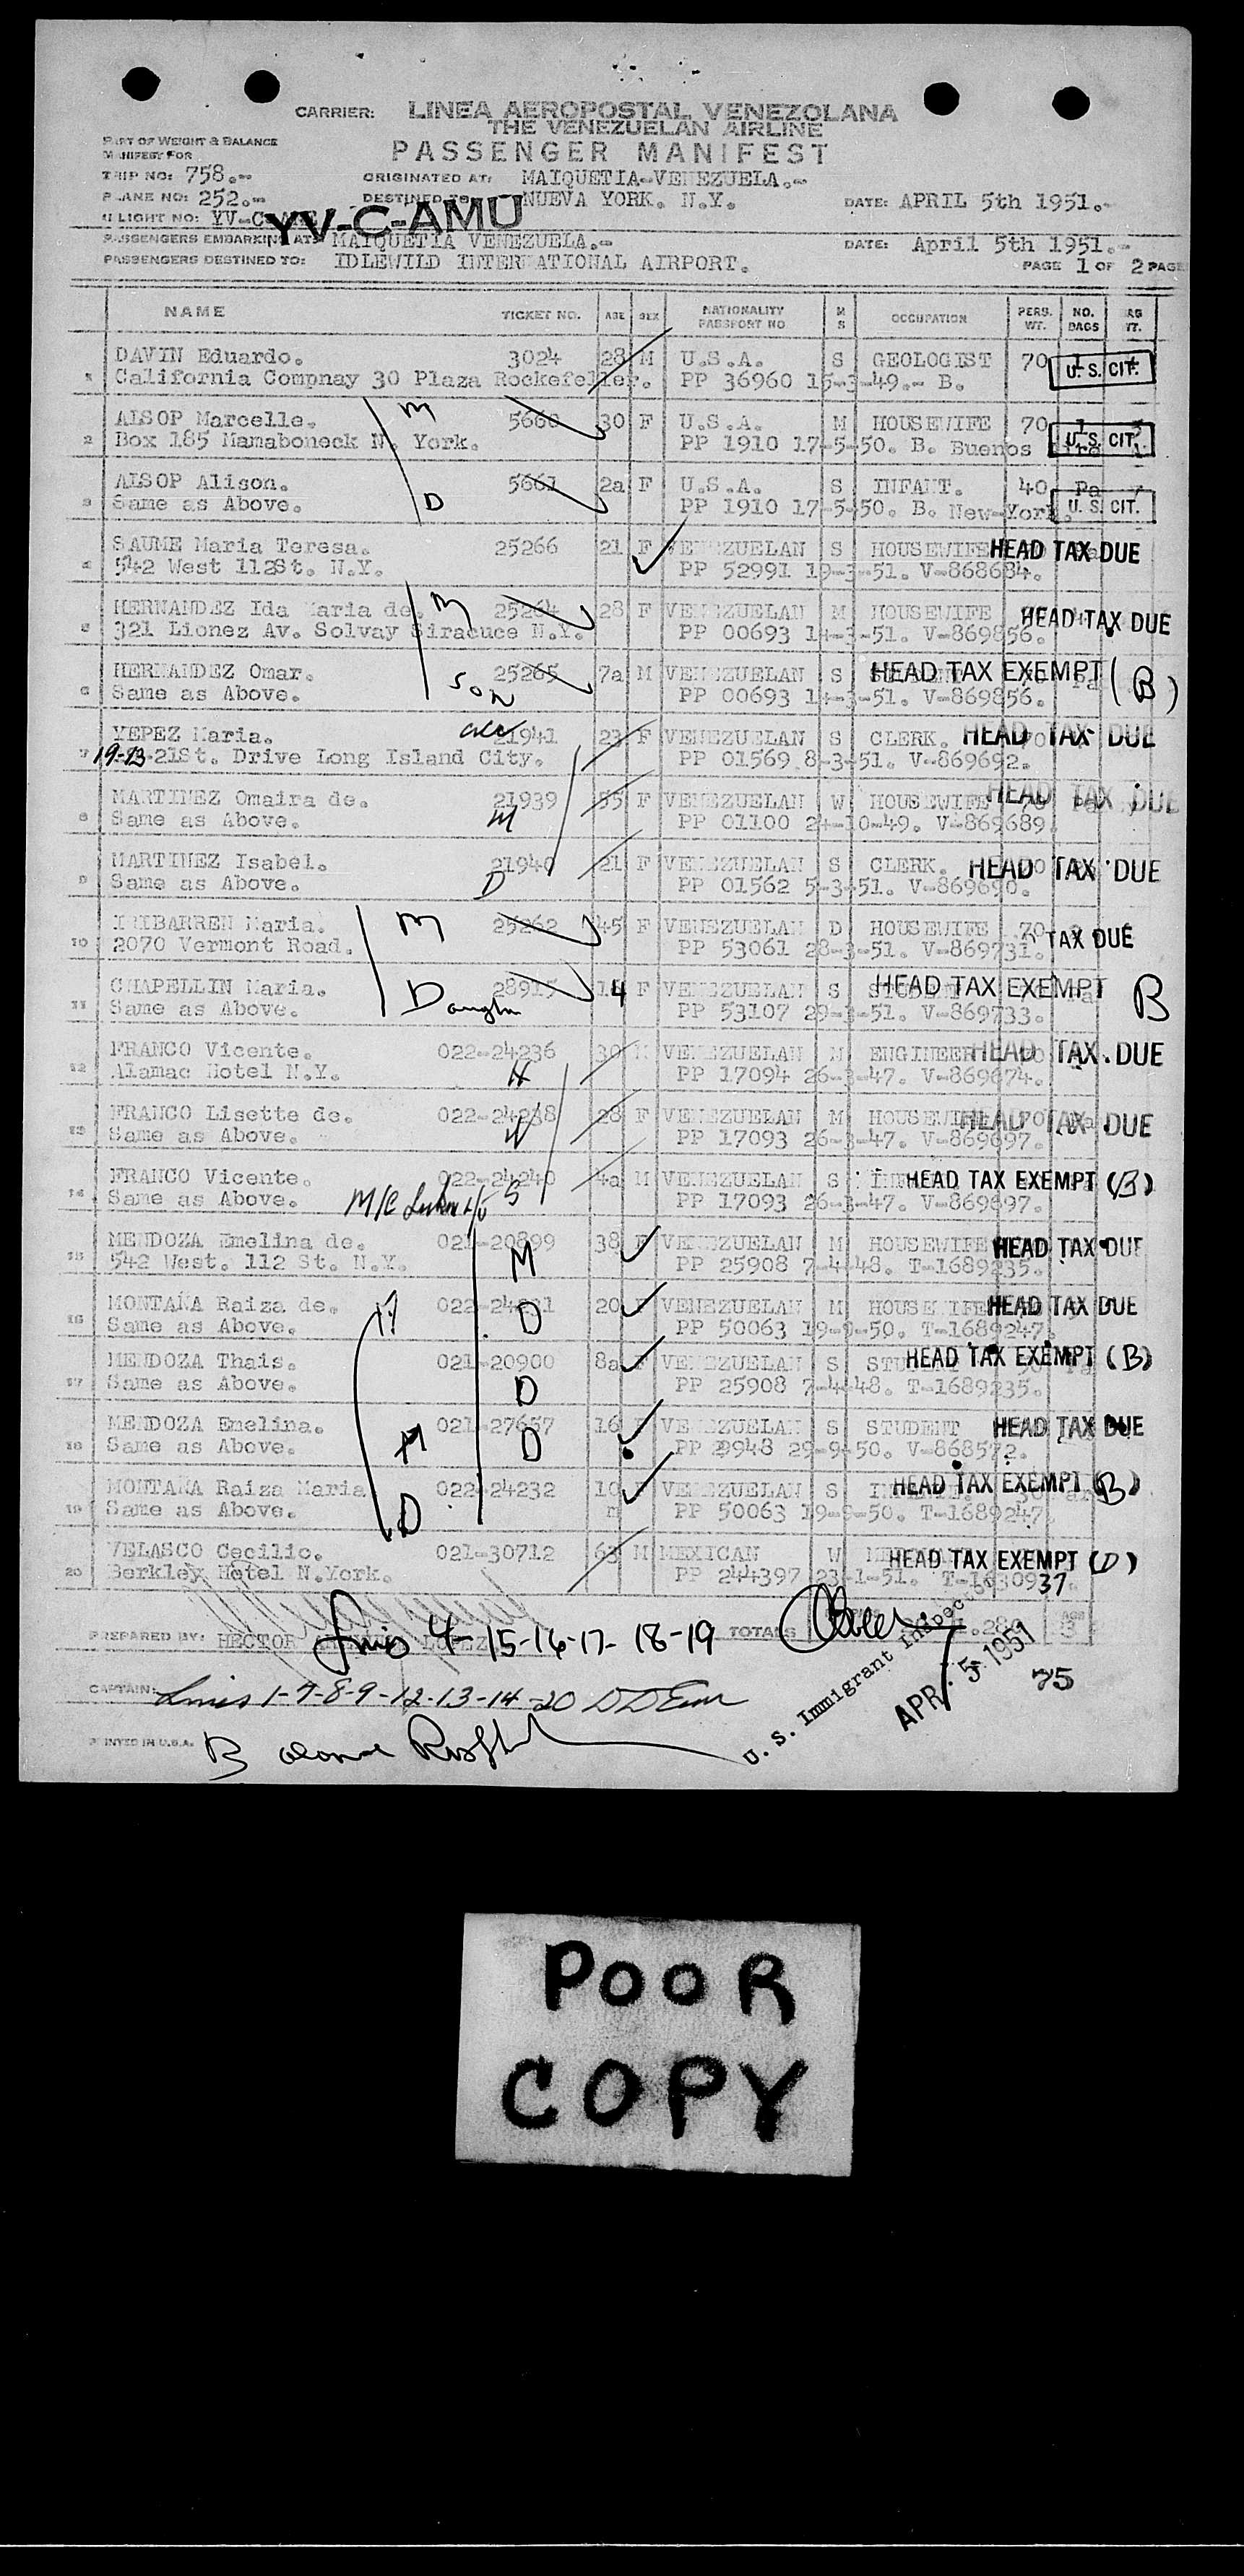 CARRIER: LINEA AEROPOSTAL VENEZOLANA
THE VENEZUELAN AIRLINE
PART OF WEIGHT & BALANCE
MANIFEST FOR
PASSENGER MANIFEST
TRIP NO: 758.-- ORIGINATED AT: MAIQUETIA-VENEZUELA.-
PLANE NO: 252.-- DESTINED TO: NUEVA YORK. N.Y. DATE: APRIL 5th 1951.-
FLIGHT NO: YV-C-AMU
PASSENGERS EMBARKING AT: MAIQUETIA VENEZUELA.- DATE: April 5th 1951.-
PASSENGERS DESTINED TO: IDLEWILD INTERNATIONAL AIRPORT. PAGE 1 OF 2 PAG
NAME TICKET NO. AGE SEX NATIONALITY PASSPORT NO M S OCCUPATION PERS. WT. NO. BAGS
DAVIN Eduardo. 3024 28 M U.S.A. S GEOLOGIST 70 U. S. CIT.
1 California Compnay 30 Plaza Rockefeller. PP 36960 15-3-49.- B.
ALSOP Marcelle. M 5660 30 F U.S.A. M HOUSEWIFE 70 U. S. CIT.
2 Box 185 Mamaboneck N. York. PP 1910 17-5-50. B. Buenos
ALSOP Alison. 5661 2a F U.S.A. S INFANT. 40 Pa 7
3 Same as Above. D PP 1910 17-5-50. B. New-York. U. S. CIT.
SAUME Maria Teresa. 25266 21 F VENEZUELAN S HOUSEWIFE HEAD TAX DUE
4 542 West 112St. N.Y. PP 52991 19-3-51. V-868684.
HERNANDEZ Ida Maria de. M 25264 28 F VENEZUELAN M HOUSEWIFE HEAD TAX DUE
5 321 Lionez Av. Solvay Siracuce N.Y. PP 00693 14-3-51. V-869856.
HERNANDEZ Omar. 25265 7a M VENEZUELAN S HEAD TAX EXEMPT (B)
6 Same as Above. SON PP 00693 14-3-51. V-869856.
YEPEZ Maria. 21941 23 F VENEZUELAN S CLERK. HEAD TAX DUE
7 19-13-21St. Drive Long Island City. PP 01569 8-3-51. V-869692.
MARTINEZ Omaira de. 21939 55 F VENEZUELAN W HOUSEWIFE HEAD TAX DUE
8 Same as Above. M PP 01100 24-10-49. V-869689.
MARTINEZ Isabel. 21940 21 F VENEZUELAN S CLERK. HEAD TAX DUE
9 Same as Above. D PP 01562 5-3-51. V-869690.
IRIBARREN Maria. M 25262 45 F VENEZUELAN D HOUSEWIFE 70 TAX DUE
10 2070 Vermont Road. PP 53061 28-3-51. V-869731.
CHAPELLIN Maria. 28915 14 F VENEZUELAN S HEAD TAX EXEMPT B
11 Same as Above. Daughter PP 53107 29-3-51. V-869733.
FRANCO Vicente. 022-24236 30 M VENEZUELAN M ENGINEER HEAD TAX DUE
12 Alamac Hotel N.Y. H PP 17094 26-3-47. V-869674.
FRANCO Lisette de. 022-24238 28 F VENEZUELAN M HOUSEWIFE HEAD TAX DUE
13 Same as Above. W PP 17093 26-3-47. V-869697.
FRANCO Vicente. 022-24240 4a M VENEZUELAN S HEAD TAX EXEMPT (B)
14 Same as Above. S PP 17093 26-3-47. V-869697.
MENDOZA Emelina de. 021-20899 38 F VENEZUELAN M HOUSEWIFE HEAD TAX DUE
15 542 West. 112 St. N.Y. M PP 25908 7-4-48. T-1689235.
MONTAÑA Raiza de. 022-24231 20 F VENEZUELAN M HOUSEWIFE HEAD TAX DUE
16 Same as Above. D PP 50063 19-9-50. T-1689247.
MENDOZA Thais. 021-20900 8a F VENEZUELAN S HEAD TAX EXEMPT (B)
17 Same as Above. D PP 25908 7-4-48. T-1689235.
MENDOZA Emelina. 021-27657 16 VENEZUELAN S STUDENT HEAD TAX DUE
18 Same as Above. M D PP 29948 29-9-50. V-868572.
MONTAÑA Raiza Maria 022-24232 10 F VENEZUELAN S HEAD TAX EXEMPT (B)
19 Same as Above. D m PP 50063 19-9-50. T-1689247.
VELASCO Cecilio. 021-30712 63 M MEXICAN W HEAD TAX EXEMPT (D)
20 Berkley Hotel N.York. PP 244397 23-1-51.
37
PREPARED BY: HECTOR LOPEZ 4-15-16-17-18-19 TOTALS
CAPTAIN: 1-7-8-9-12-13-14-20
U. S. Immigrant Inspector APR 5 1951 75
PRINTED IN U.S.A. B
POOR
COPY